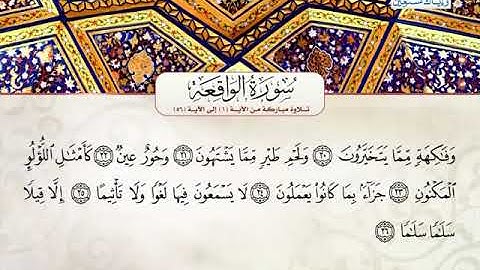 سُورَةُ الْوَاقِعَة
تلاوة مباركة من الآية (١) إلى الآية (٥٦)
وَفَٰكِهَةٖ مِّمَّا يَتَخَيَّرُونَ ٢٠ وَلَحۡمِ طَيۡرٖ مِّمَّا يَشۡتَهُونَ ٢١ وَحُورٌ عِينٞ ٢٢ كَأَمۡثَٰلِ ٱللُّؤۡلُوِٕ
ٱلۡمَكۡنُونِ ٢٣ جَزَآءَۢ بِمَا كَانُواْ يَعۡمَلُونَ ٢٤ لَا يَسۡمَعُونَ فِيهَا لَغۡوٗا وَلَا تَأۡثِيمًا ٢٥ إِلَّا قِيلٗا
سَلَٰمٗا سَلَٰمٗا ٢٦